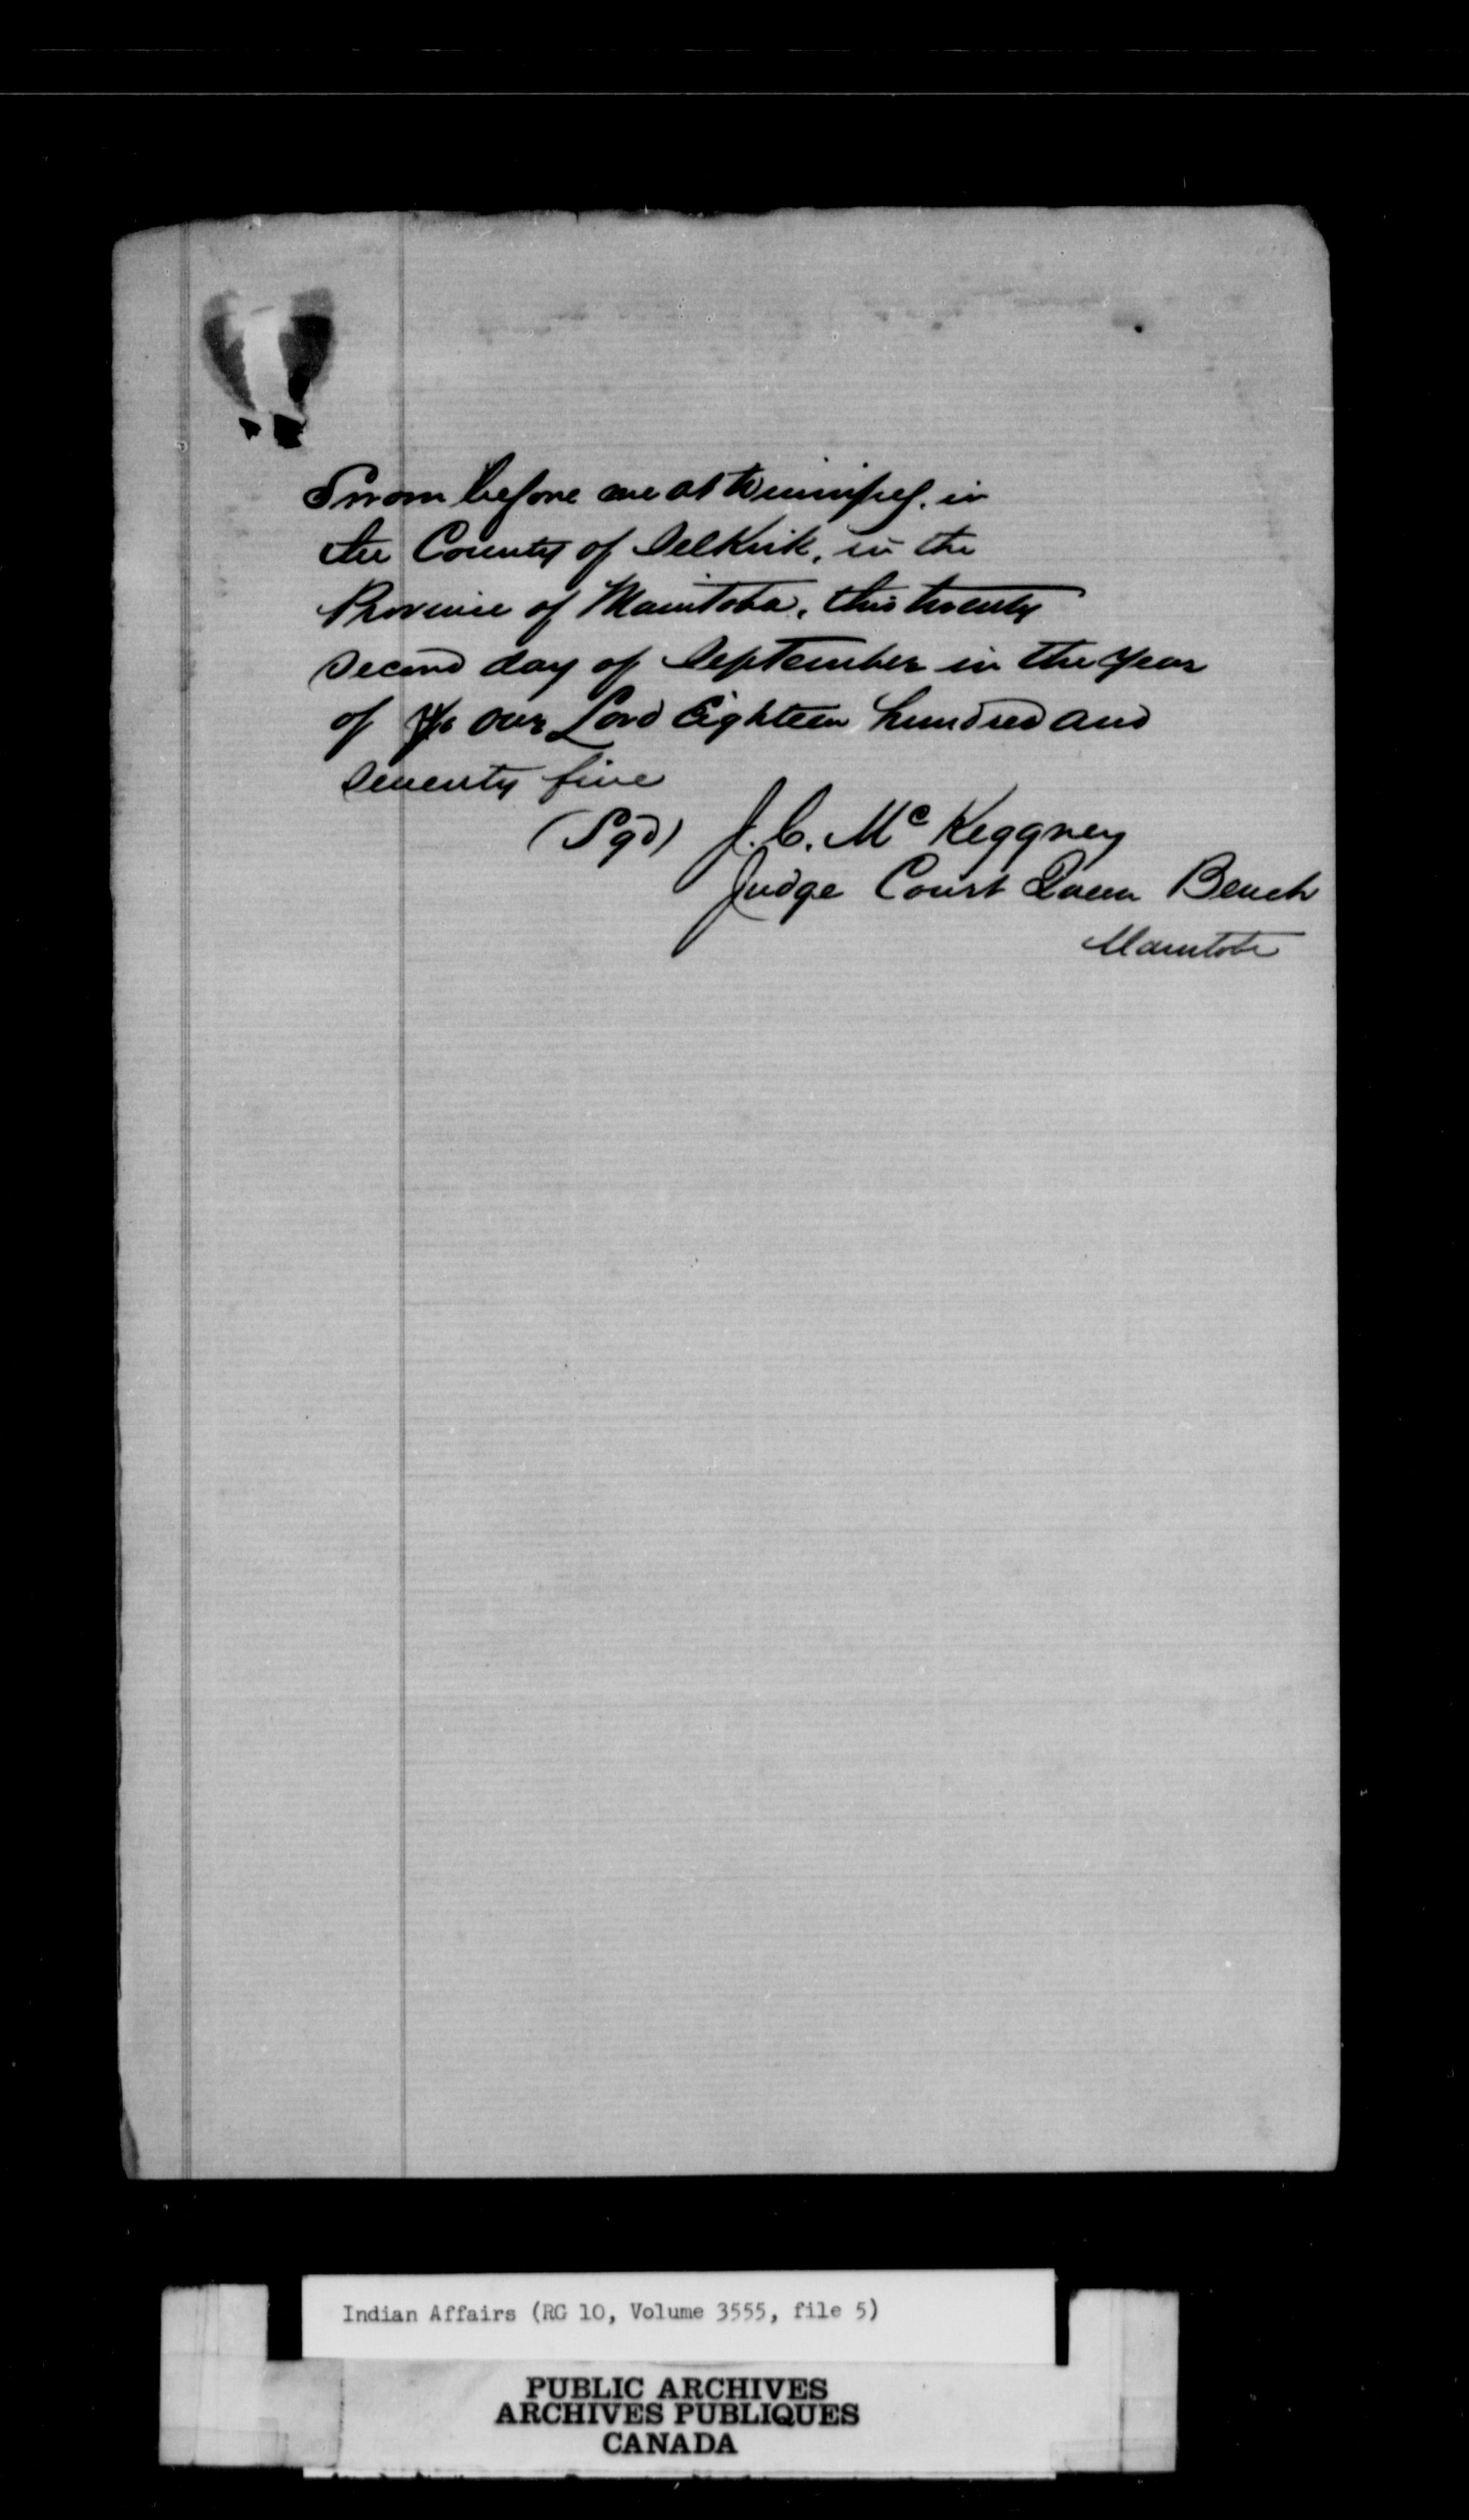 Sworn before me at Winnipeg, in
the County of Selkirk, in the
Province of Manitoba, this twenty
second day of September in the year
of our Lord Eighteen hundred and
seventy five
(Sgd) J. C. Mc Keggney
Judge Court Queen Bench
Manitoba
Indian Affairs (RG 10, Volume 3555, file 5)
PUBLIC ARCHIVES
ARCHIVES PUBLIQUES
CANADA